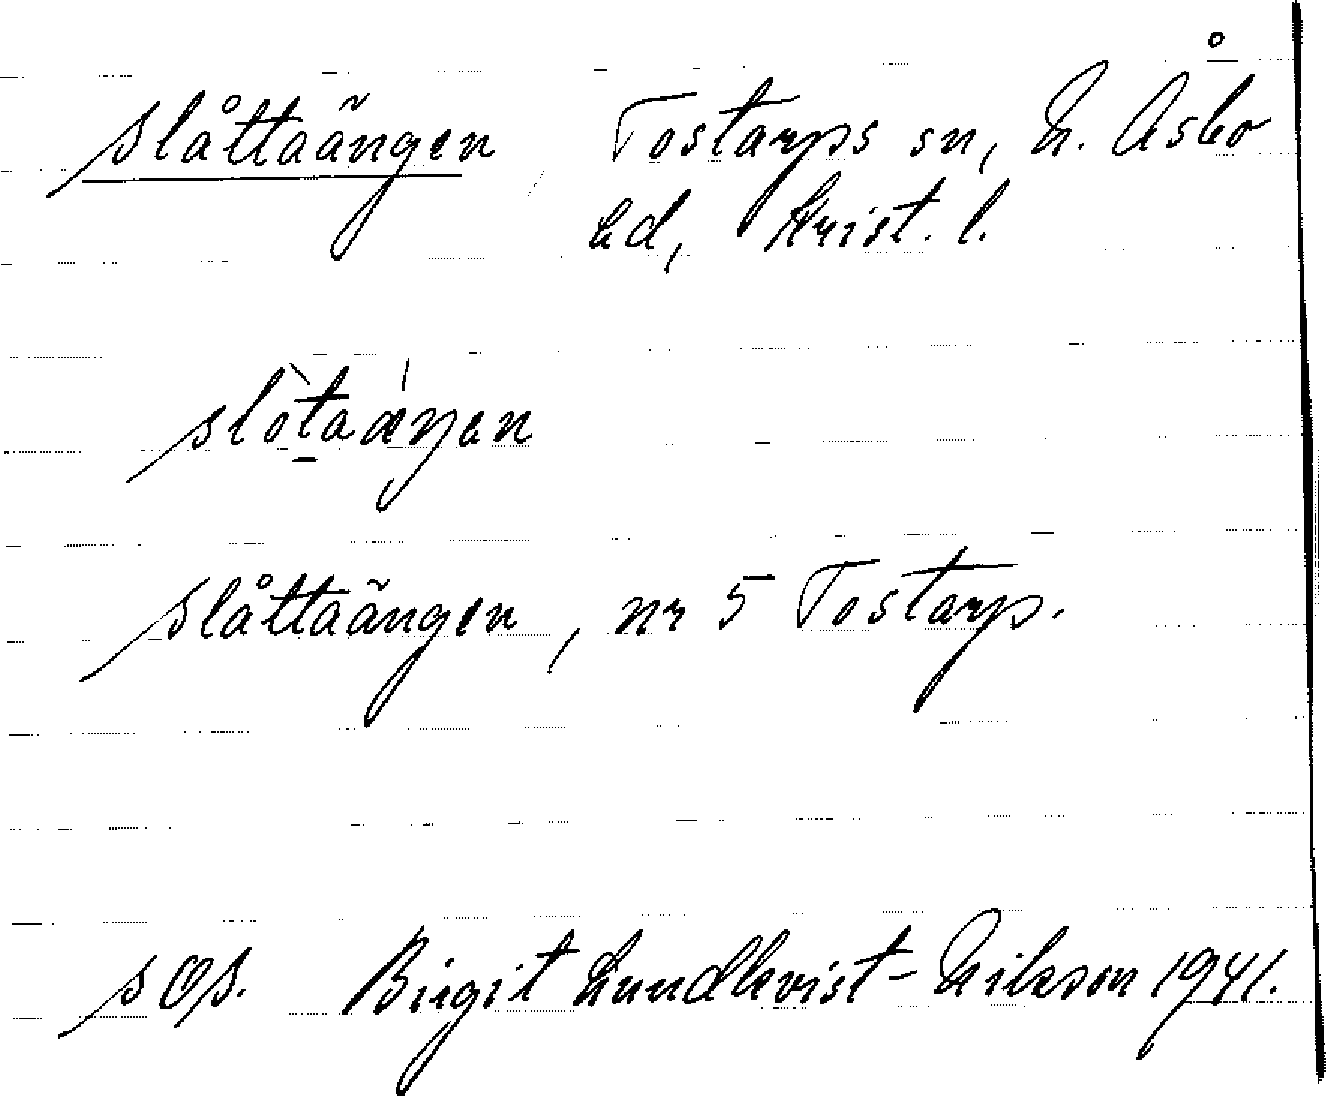 slåttaängen Tostarps sn, N. Åsbo
hd, Krist. l.
slòtaæ´ŋən
slåttaängen, nr 5 Tostarp.
Birgit Lundkvist-Nilsson 1941.